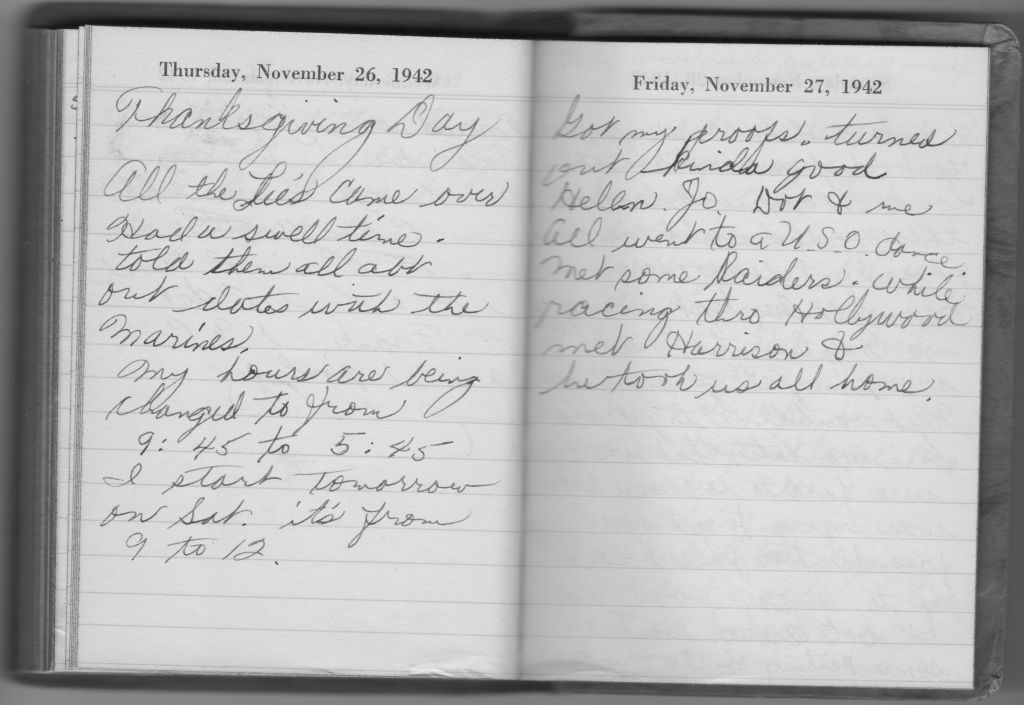 Thursday, November 26, 1942
Thanksgiving Day
All the Lie's came over
Had a swell time.
told them all abt
our dates with the
Marines.
My hours are being
changed to from
9:45 to 5:45
I start tomorrow
on Sat. it's from
9 to 12.
Friday, November 27, 1942
Got my proofs. turned
out kinda good
Helen. Jo. Dot & me
all went to a U.S.O. dance.
Met some Raiders. while
racing thro Hollywood
met Harrison &
he took us all home.